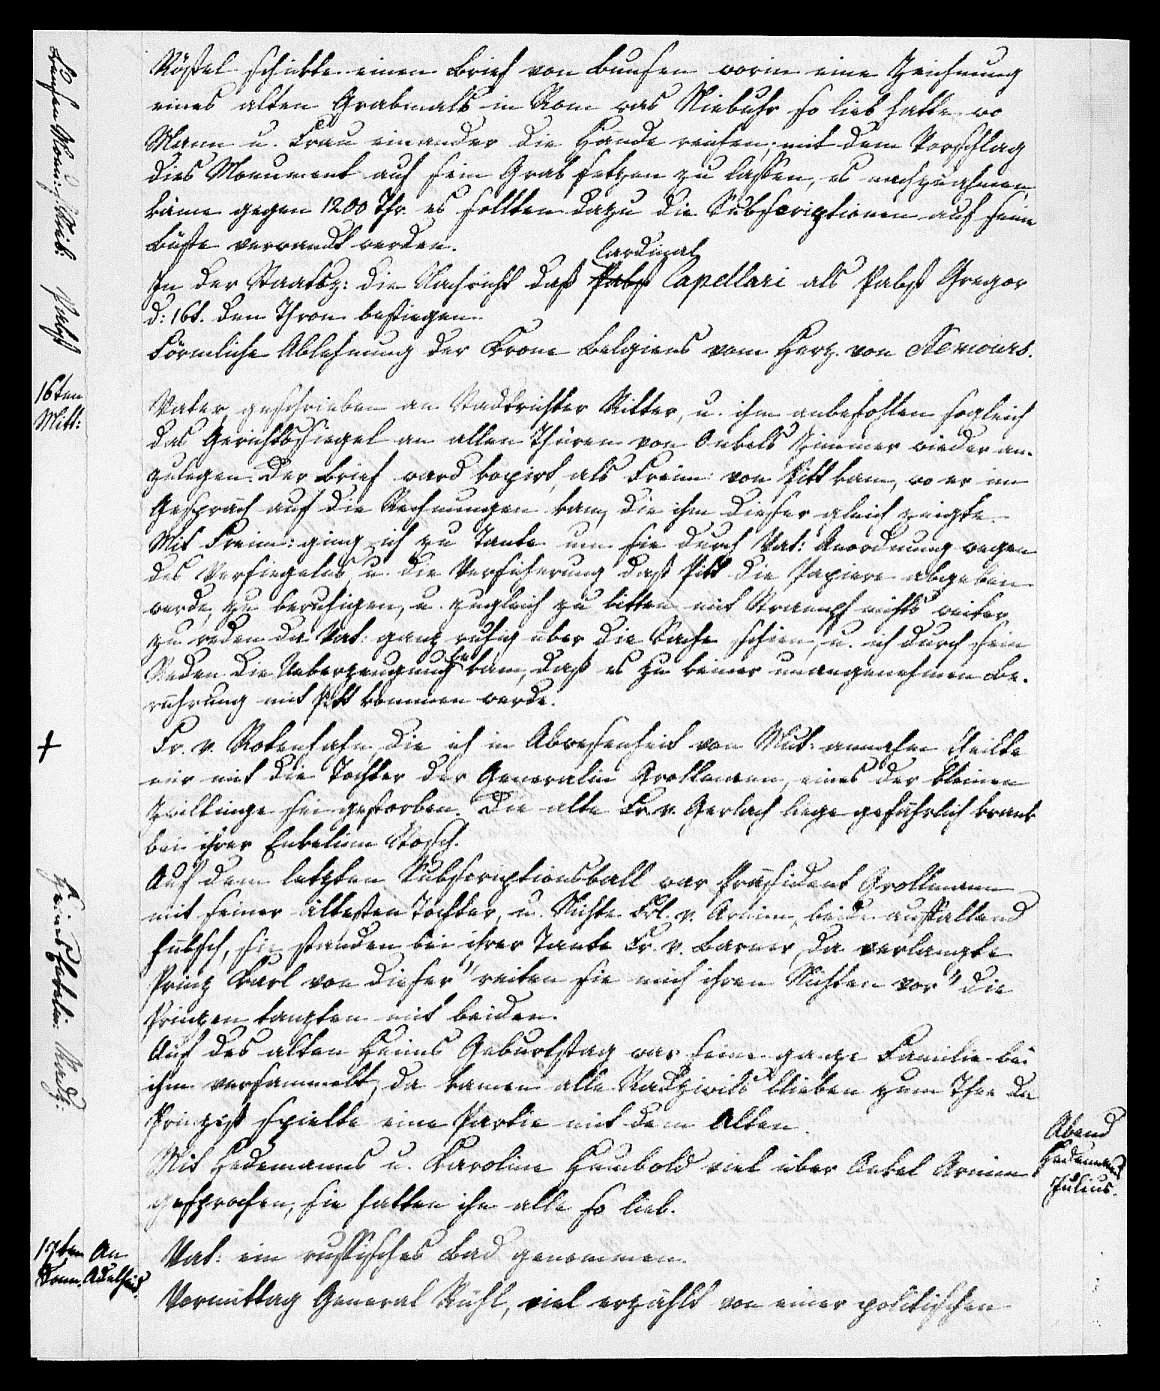 Rößel schickte einen Brief von Bunsen worin eine Zeichnung
eines alten Grabmals in Rom was Niebuhr so lieb hatte wo
Mann u. Frau einander die Hände reichen, mit dem Vorschlag
dies Monument auf sein Grab setzen zu lassen, es nachzuahmen
käme gegen 1200 Thr. es sollten dazu die Subscriptionen auf seine
Büste verwandt werden.
Cardinal
In der Staatsz: die Nachricht daß Pabst Capellari als Pabst Gregor
d: 16t. den Thron bestiegen.
Förmliche Ablehnung der Krone Belgiens vom Herz. von Nemours.
16ten
Mitt:
Vater geschrieben an Stadtrichter Ritter, u. ihm anbefohlen sogleich
das Gerichtssiegel an allen Thüren von Onkels Zimmer wieder an-
zulegen. Der Brief ward kopirt, als Freim: von Pitt kam, wo er im
Gespräch auf die Rechnungen kam, die ihm dieser gleich zeigte.
Mit Freim: ging ich zu Tante um sie durch Vat: Anordnung wegen
des Versiegelns u. die Versicherung daß Pitt die Papiere abgeben
werde, zu beruhigen, u. zugleich zu bitten mit Strampf nichts weiter
zu reden da Vat: ganz ruhig über die Sache schien, u. ich durch sein
Reden die Ueberzeugung bekam, daß es zu keiner unangenehmen Be-
rührung mit Pitt kommen werde.
Fr. v. Rotenhahn die ich in Abwesenheit von Mut: annahm theilte
mir mit die Tochter der Generalin Grollmann, eines der kleinen
Zwillinge sei gestorben. Die alte Fr. v. Gerlach liege gefährlich krank
bei ihrer Enkelinn Stosch.
Auf dem letzten Subscriptionsball war Präsident Grollmann
mit seiner ältesten Tochter, u. Nichte Frl. v. Arnim, beide auffallend
hübsch, sie standen bei ihrer Tante Fr. v. Barner, da verlangte
Prinz Karl von dieser "reiten sie mich ihren Nichten vor" die
Prinzen tanzten mit beiden.
Auf des alten Heims Geburtstag war seine ganze Familie bei
ihm versammelt, da kamen alle Radziwils blieben zum Thee die
Prinzeß spielte eine Partie mit dem Alten.
Mit Hedemanns u. Karoline Humbold viel über Onkel Arnim
gesprochen, sie hatten ihn alle so lieb.
Abend
Hedemanns
Julius.
17ten An
Donn. Adelheid.
Vat: ein russisches Bad genommen.
Vormittag General Rühl, viel erzählt von einer politischen